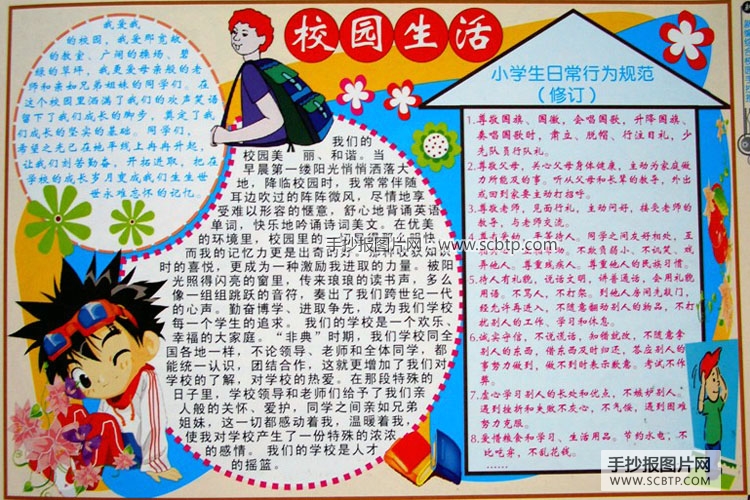 校园生活
我爱我
的校园，我爱那宽敞
的教室、广阔的操场、碧
绿的草坪，我更爱母亲般的老
师和亲如兄弟姐妹的同学们。在
这个校园里洒满了我们的欢声笑语
留下了我们成长的脚步，奠定了我
们成长的坚实的基础。同学们，
希望之光已在地平线上冉冉升起，
让我们刻苦勤奋、开拓进取，把在
学校的成长岁月变成我们生生世
世永难忘怀的记忆。
我们的
校园美丽、和谐。当
早晨第一缕阳光悄悄洒落大
地，降临校园时，我常常伴随
耳边吹过的阵阵微风，尽情地享
受难以形容的惬意，舒心地背诵英语
单词，快乐地吟诵诗词美文。在优美
的环境里，校园里的
而我的记忆力更是出奇的好。那种收获知识
时的喜悦，更成为一种激励我进取的力量。被阳
光照得闪亮的窗里，传来琅琅的读书声，多么
像一组组跳跃的音符，奏出了我们跨世纪一代
的心声。勤奋博学、进取争先，成为我们学校
每一个学生的追求。 我们的学校是一个欢乐、
幸福的大家庭。“非典”时期，我们学校同全
国各地一样，不论领导、老师和全体同学，都
能统一认识，团结合作，这就更增加了我们对
学校的了解，对学校的热爱。在那段特殊的
日子里，学校领导和老师们给予了我们亲
人般的关怀、爱护，同学之间亲如兄弟
姐妹，这一切都感动着我，温暖着我，
使我对学校产生了一份特殊的浓浓
的感情。 我们的学校是人才
的摇篮。
小学生日常行为规范
（修订）
1.尊敬国旗、国徽，会唱国歌，升降国旗、
奏唱国歌时，肃立、脱帽、行注目礼，少
先队员行队礼。
2.尊敬父母，关心父母身体健康，主动为家庭做
力所能及的事。听从父母和长辈的教导，外出
或回到家要主动打招呼。
3.尊敬老师，见面行礼，主动问好，接受老师的
教导，与老师交流。
平等待人。同学之间友好相处，互
不欺负弱小，不讥笑、戏
弄他人。尊重残疾人。尊重他人的民族习惯。
5.待人有礼貌，说话文明，讲普通话，会用礼貌
用语。不骂人，不打架。到他人房间先敲门，
经允许再进入，不随意翻动别人的物品，不打
扰别人的工作、学习和休息。
6.诚实守信，不说谎话，知错就改，不随意拿
别人的东西，借东西及时归还，答应别人的
事努力做到，做不到时表示歉意。考试不作
弊。
7.虚心学习别人的长处和优点，不嫉妒别人。
遇到挫折和失败不灰心，不气馁，遇到困难
努力克服。
8.爱惜粮食和学习、生活用品。节约水电，不
比吃穿，不乱花钱。
……
手抄报图片网 www.scbtp.com
手抄报图片网
WWW.SCBTP.COM